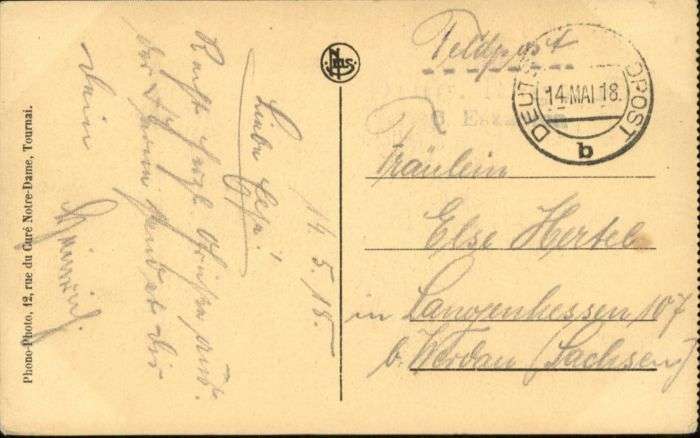 Phono-Photo, 12, rue du Curé Notre-Dame, Tournai.
14.5.18.
Liebe Else!
Recht herzl.
der Ferne sendet dir
dein
Nels
Feldpost
DEUT POST
14 MAI 18.
b
Fräulein
Else Hertel
in Langenhessen 107
b. Werdau (Sachsen)